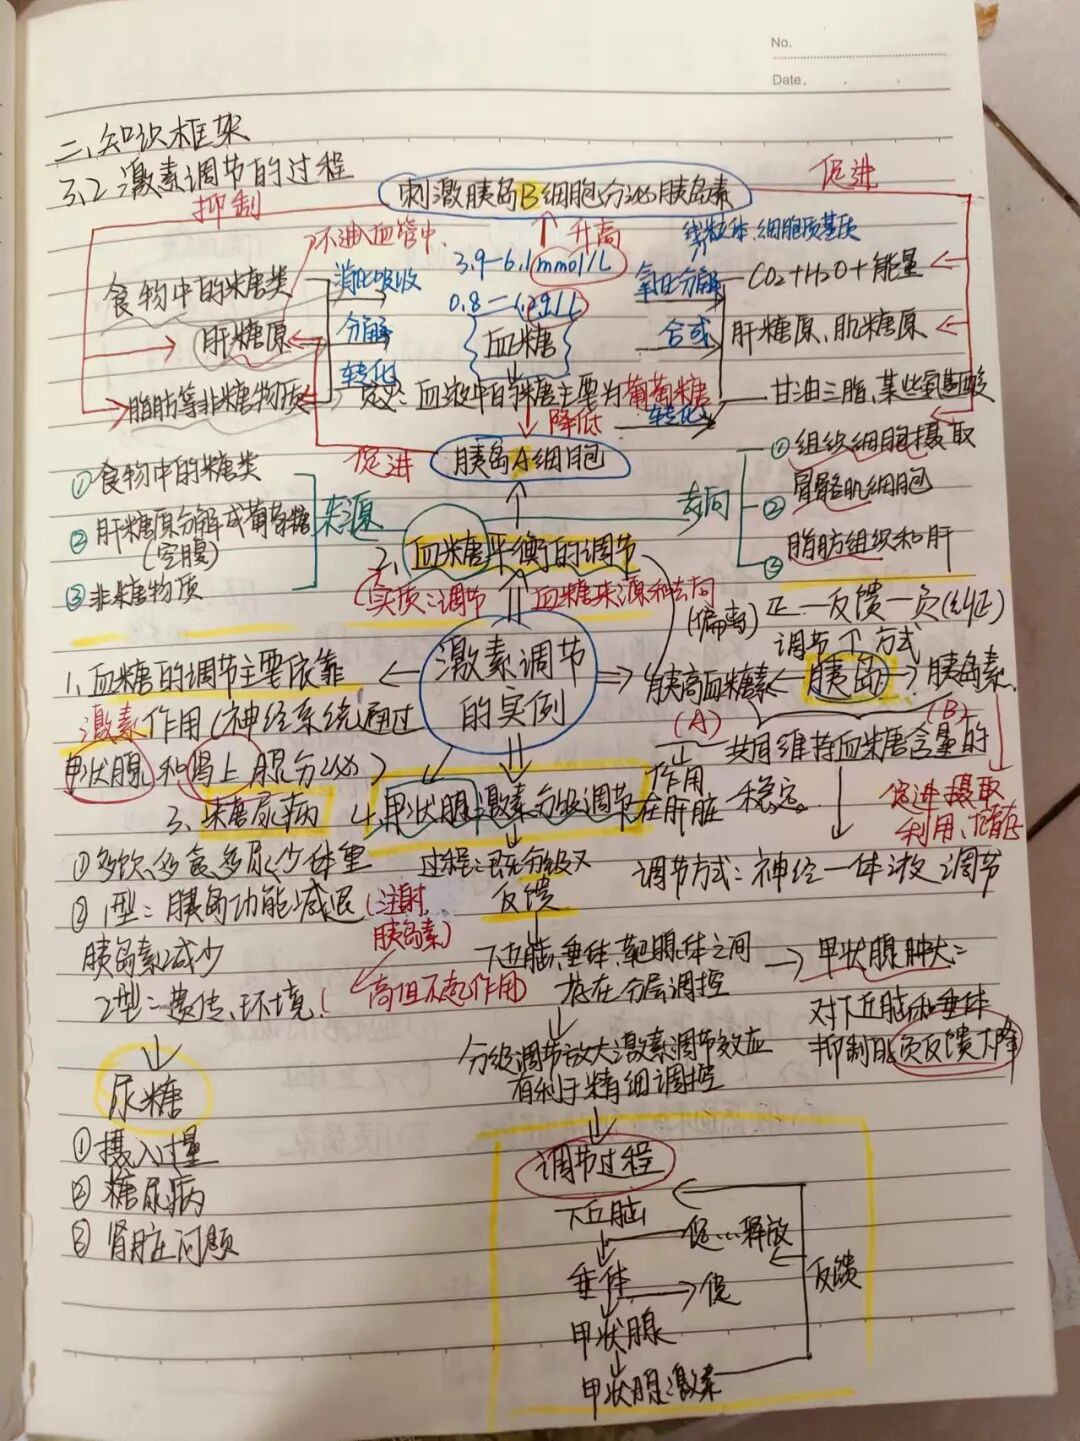 No.
Date.
二、知识框架
3.2 激素调节的过程
刺激胰岛B细胞分泌胰岛素
促进
抑制
不进血管中
升高
线粒体、细胞质基质
3.9-6.1mmol/L
食物中的糖类
消化吸收
氧化分解
CO₂+H₂O+能量
0.8-1.2g/L
肝糖原
分解
血糖
合成
肝糖原、肌糖原
脂肪等非糖物质
转化
血液中的糖主要为葡萄糖
转化
甘油三脂,某些氨基酸
降低
促进
胰岛A细胞
①食物中的糖类
②肝糖原分解成葡萄糖
(空腹)
③非糖物质
来源
去向
①组织细胞摄取
②骨骼肌细胞
③脂肪组织和肝
2、血糖平衡的调节
(实质:调节 血糖来源和去向
(偏离)
正—反馈—负(纠正)
调节个方式
激素调节
的实例
1、血糖的调节主要依靠
激素作用(神经系统通过
甲状腺和肾上腺分泌)
胰高血糖素
胰岛
胰岛素
(A)
(B)
共同维持血糖含量的
稳定。
作用
在肝脏
促进摄取
利用、储存
调节方式:神经—体液调节
3、糖尿病
①多饮、多食、多尿、少体重
②1型:胰岛功能减退
(注射
胰岛素)
胰岛素减少
2型:遗传、环境
(高但不起作用)
尿糖
①摄入过量
②糖尿病
③肾脏问题
4、甲状腺激素分级调节
过程:既分级又
反馈
下丘脑、垂体、靶腺体之间
存在分层调控
甲状腺肿大:
对下丘脑和垂体
抑制的负反馈下降
分级调节放大激素调节效应
有利于精细调控
调节过程
下丘脑
促…释放
垂体
促
反馈
甲状腺
甲状腺激素